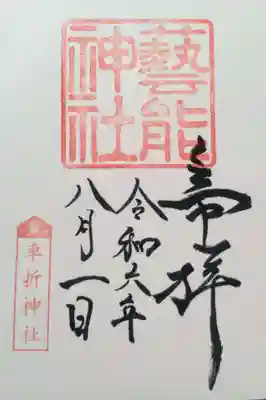 藝能神社
奉拝
令和六年
八月一日
車折神社